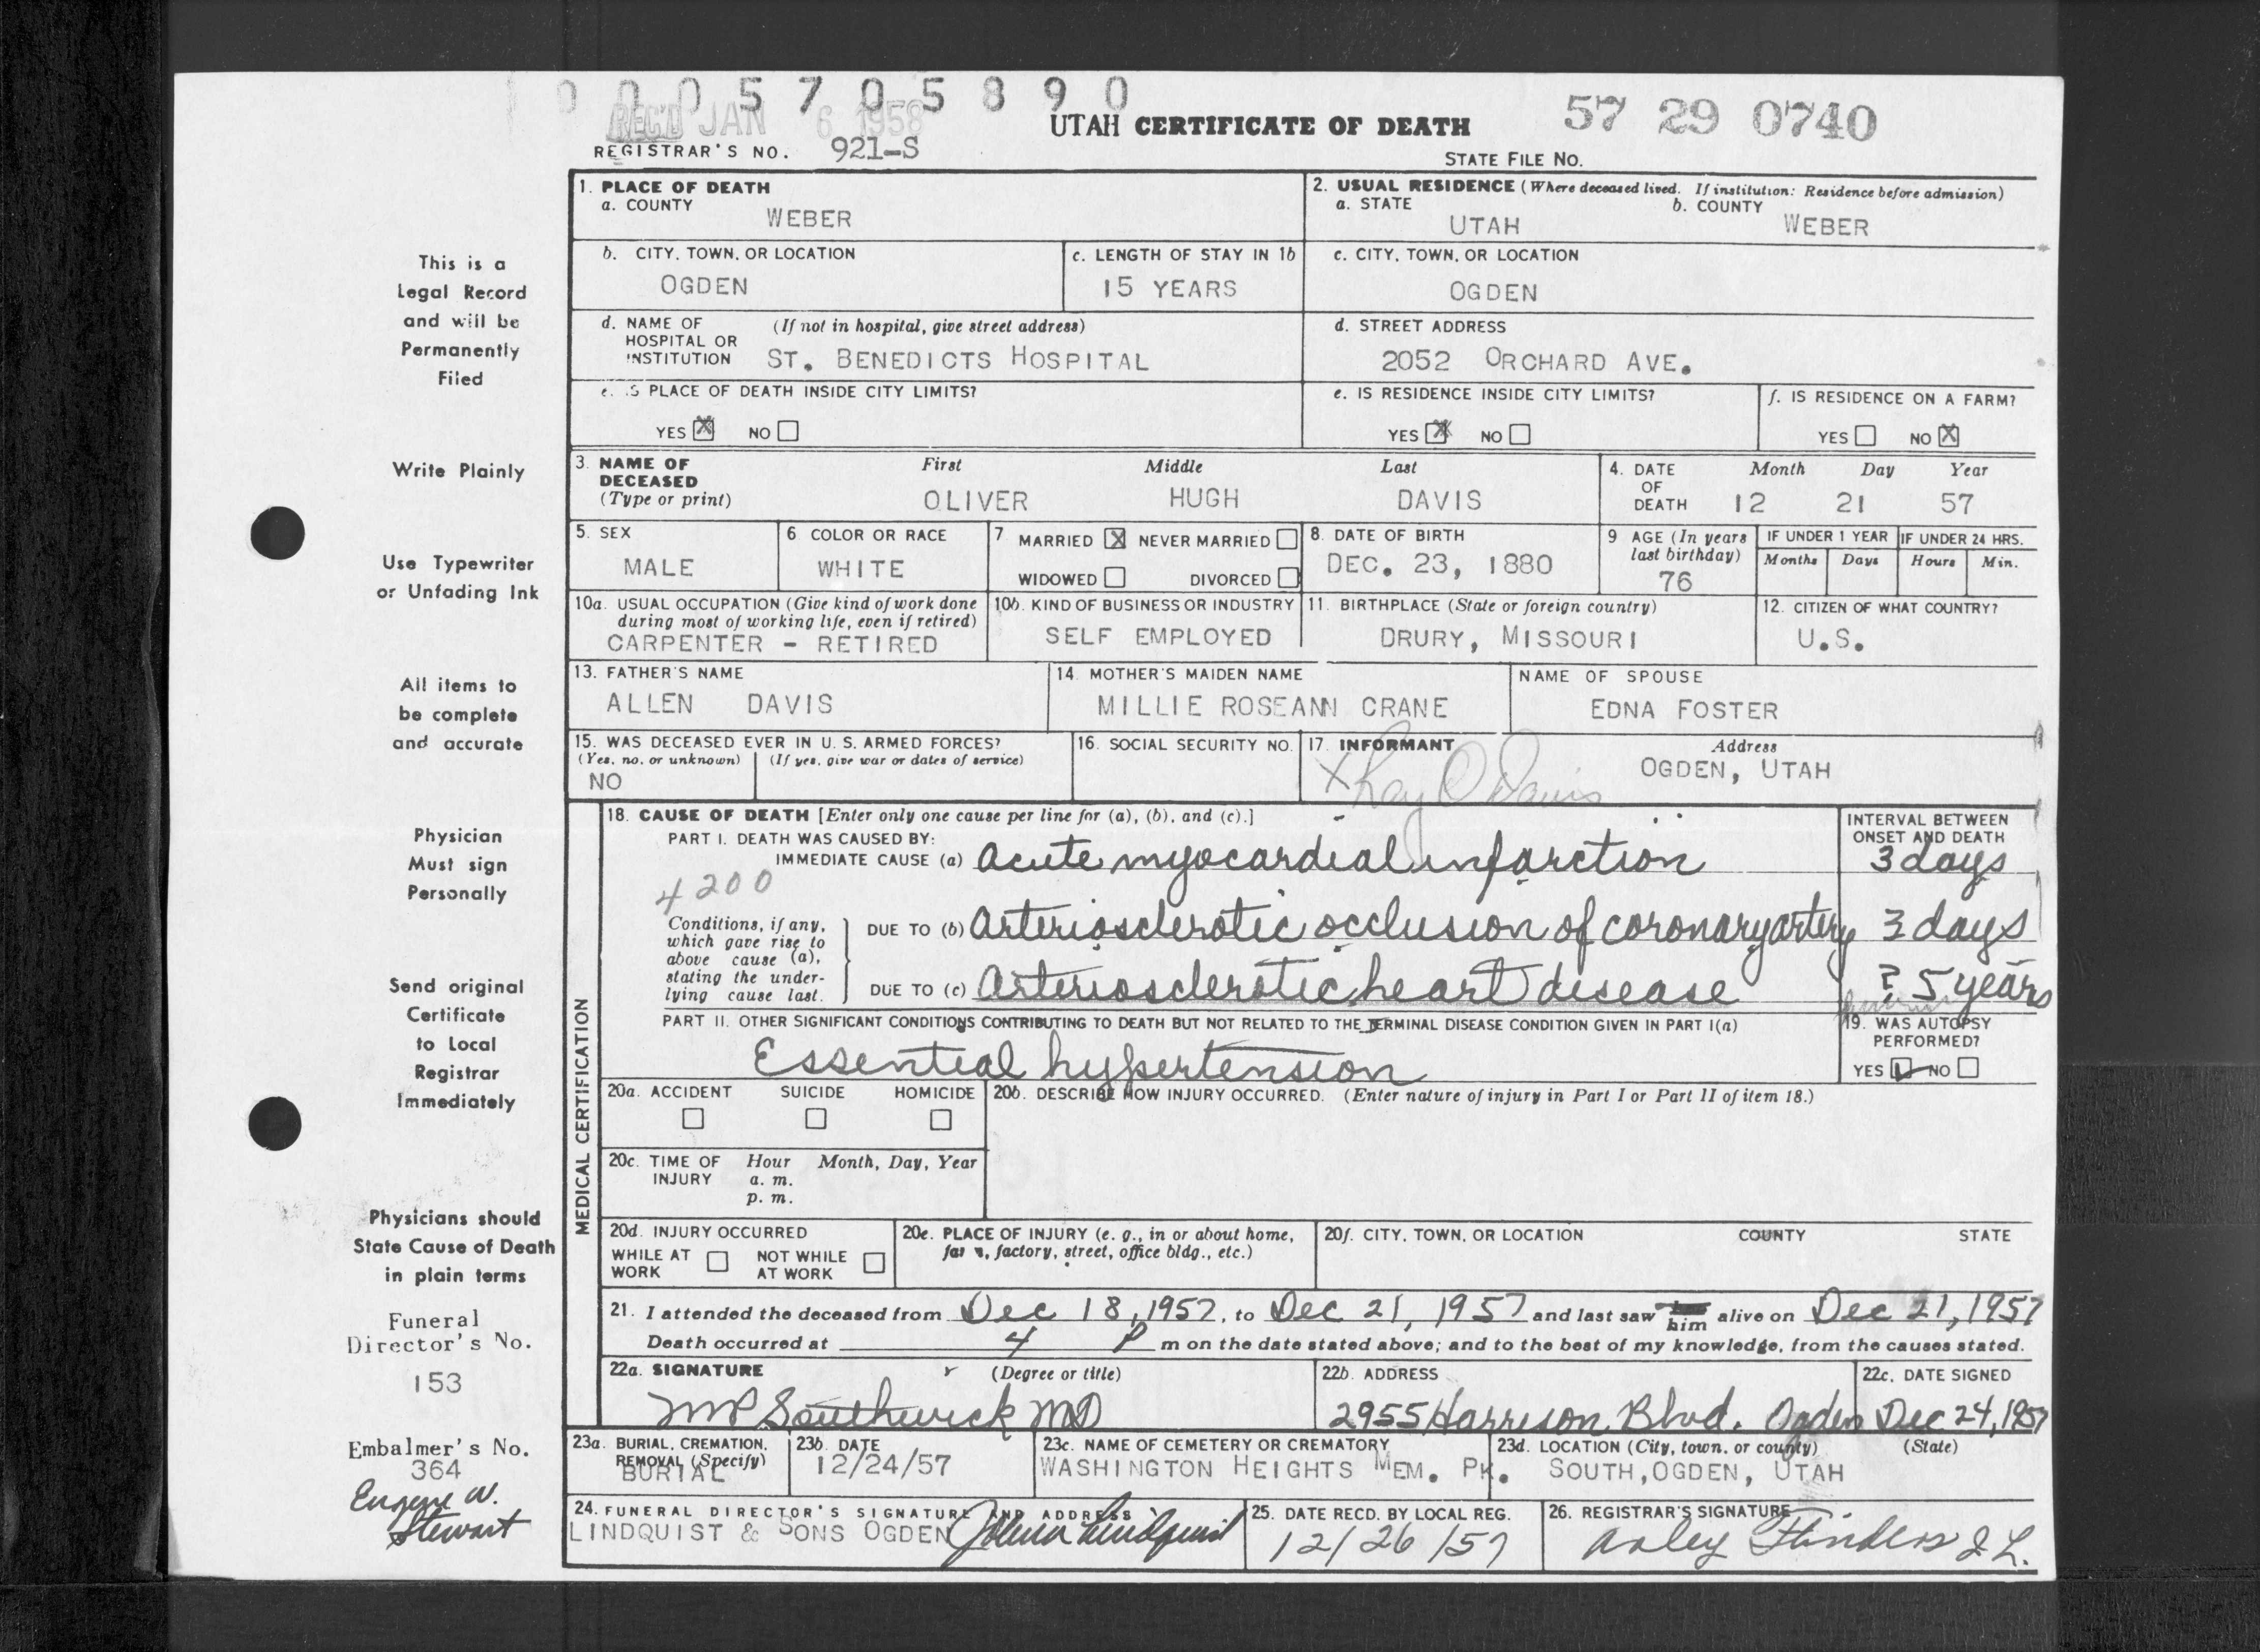 0005705890
REC'D JAN 6 1958
UTAH CERTIFICATE OF DEATH
57 29 0740
REGISTRAR'S NO. 921-S
STATE FILE NO.
1. PLACE OF DEATH
a. COUNTY
WEBER
2. USUAL RESIDENCE (Where deceased lived. If institution: Residence before admission)
a. STATE
UTAH
b. COUNTY
WEBER
b. CITY, TOWN, OR LOCATION
OGDEN
c. LENGTH OF STAY IN 1b
15 YEARS
c. CITY, TOWN, OR LOCATION
OGDEN
d. NAME OF HOSPITAL OR INSTITUTION
(If not in hospital, give street address)
ST. BENEDICTS HOSPITAL
d. STREET ADDRESS
2052 ORCHARD AVE.
e. IS PLACE OF DEATH INSIDE CITY LIMITS?
YES X NO
e. IS RESIDENCE INSIDE CITY LIMITS?
YES X NO
f. IS RESIDENCE ON A FARM?
YES NO X
3. NAME OF DECEASED (Type or print)
First Middle Last
OLIVER HUGH DAVIS
4. DATE OF DEATH
Month Day Year
12 21 57
5. SEX
MALE
6. COLOR OR RACE
WHITE
7. MARRIED X NEVER MARRIED
WIDOWED DIVORCED
8. DATE OF BIRTH
DEC. 23, 1880
9. AGE (In years last birthday)
76
IF UNDER 1 YEAR
Months Days
IF UNDER 24 HRS.
Hours Min.
10a. USUAL OCCUPATION (Give kind of work done during most of working life, even if retired)
CARPENTER - RETIRED
10b. KIND OF BUSINESS OR INDUSTRY
SELF EMPLOYED
11. BIRTHPLACE (State or foreign country)
DRURY, MISSOURI
12. CITIZEN OF WHAT COUNTRY?
U.S.
13. FATHER'S NAME
ALLEN DAVIS
14. MOTHER'S MAIDEN NAME
MILLIE ROSEANN CRANE
NAME OF SPOUSE
EDNA FOSTER
15. WAS DECEASED EVER IN U. S. ARMED FORCES?
(Yes, no, or unknown) (If yes, give war or dates of service)
NO
16. SOCIAL SECURITY NO.
17. INFORMANT
X Ray O Davis
Address
OGDEN, UTAH
MEDICAL CERTIFICATION
18. CAUSE OF DEATH [Enter only one cause per line for (a), (b), and (c).]
INTERVAL BETWEEN ONSET AND DEATH
PART I. DEATH WAS CAUSED BY:
IMMEDIATE CAUSE (a) Acute myocardial infarction 3 days
4200
Conditions, if any, which gave rise to above cause (a), stating the underlying cause last.
DUE TO (b) Arteriosclerotic occlusion of coronary artery 3 days
DUE TO (c) Arteriosclerotic heart disease ? 5 years
PART II. OTHER SIGNIFICANT CONDITIONS CONTRIBUTING TO DEATH BUT NOT RELATED TO THE TERMINAL DISEASE CONDITION GIVEN IN PART I(a)
Essential hypertension
19. WAS AUTOPSY PERFORMED?
YES NO
20a. ACCIDENT SUICIDE HOMICIDE
20b. DESCRIBE HOW INJURY OCCURRED. (Enter nature of injury in Part I or Part II of item 18.)
20c. TIME OF INJURY
Hour Month, Day, Year
a. m.
p. m.
20d. INJURY OCCURRED
WHILE AT WORK NOT WHILE AT WORK
20e. PLACE OF INJURY (e. g., in or about home, farm, factory, street, office bldg., etc.)
20f. CITY, TOWN, OR LOCATION COUNTY STATE
21. I attended the deceased from Dec 18, 1957, to Dec 21, 1957 and last saw him alive on Dec 21, 1957
Death occurred at 4 P m on the date stated above; and to the best of my knowledge, from the causes stated.
22a. SIGNATURE (Degree or title)
MP Southwick MD
22b. ADDRESS
2955 Harrison Blvd. Ogden
22c. DATE SIGNED
Dec 24, 1957
23a. BURIAL, CREMATION, REMOVAL (Specify)
BURIAL
23b. DATE
12/24/57
23c. NAME OF CEMETERY OR CREMATORY
WASHINGTON HEIGHTS MEM. PK.
23d. LOCATION (City, town, or county) (State)
SOUTH, OGDEN, UTAH
24. FUNERAL DIRECTOR'S SIGNATURE AND ADDRESS
LINDQUIST & SONS OGDEN
25. DATE RECD. BY LOCAL REG.
12/26/57
26. REGISTRAR'S SIGNATURE
Arley Flinders J L.
This is a
Legal Record
and will be
Permanently
Filed
Write Plainly
Use Typewriter
or Unfading Ink
All items to
be complete
and accurate
Physician
Must sign
Personally
Send original
Certificate
to Local
Registrar
Immediately
Physicians should
State Cause of Death
in plain terms
Funeral
Director's No.
153
Embalmer's No.
364
Eugene W.
Stewart